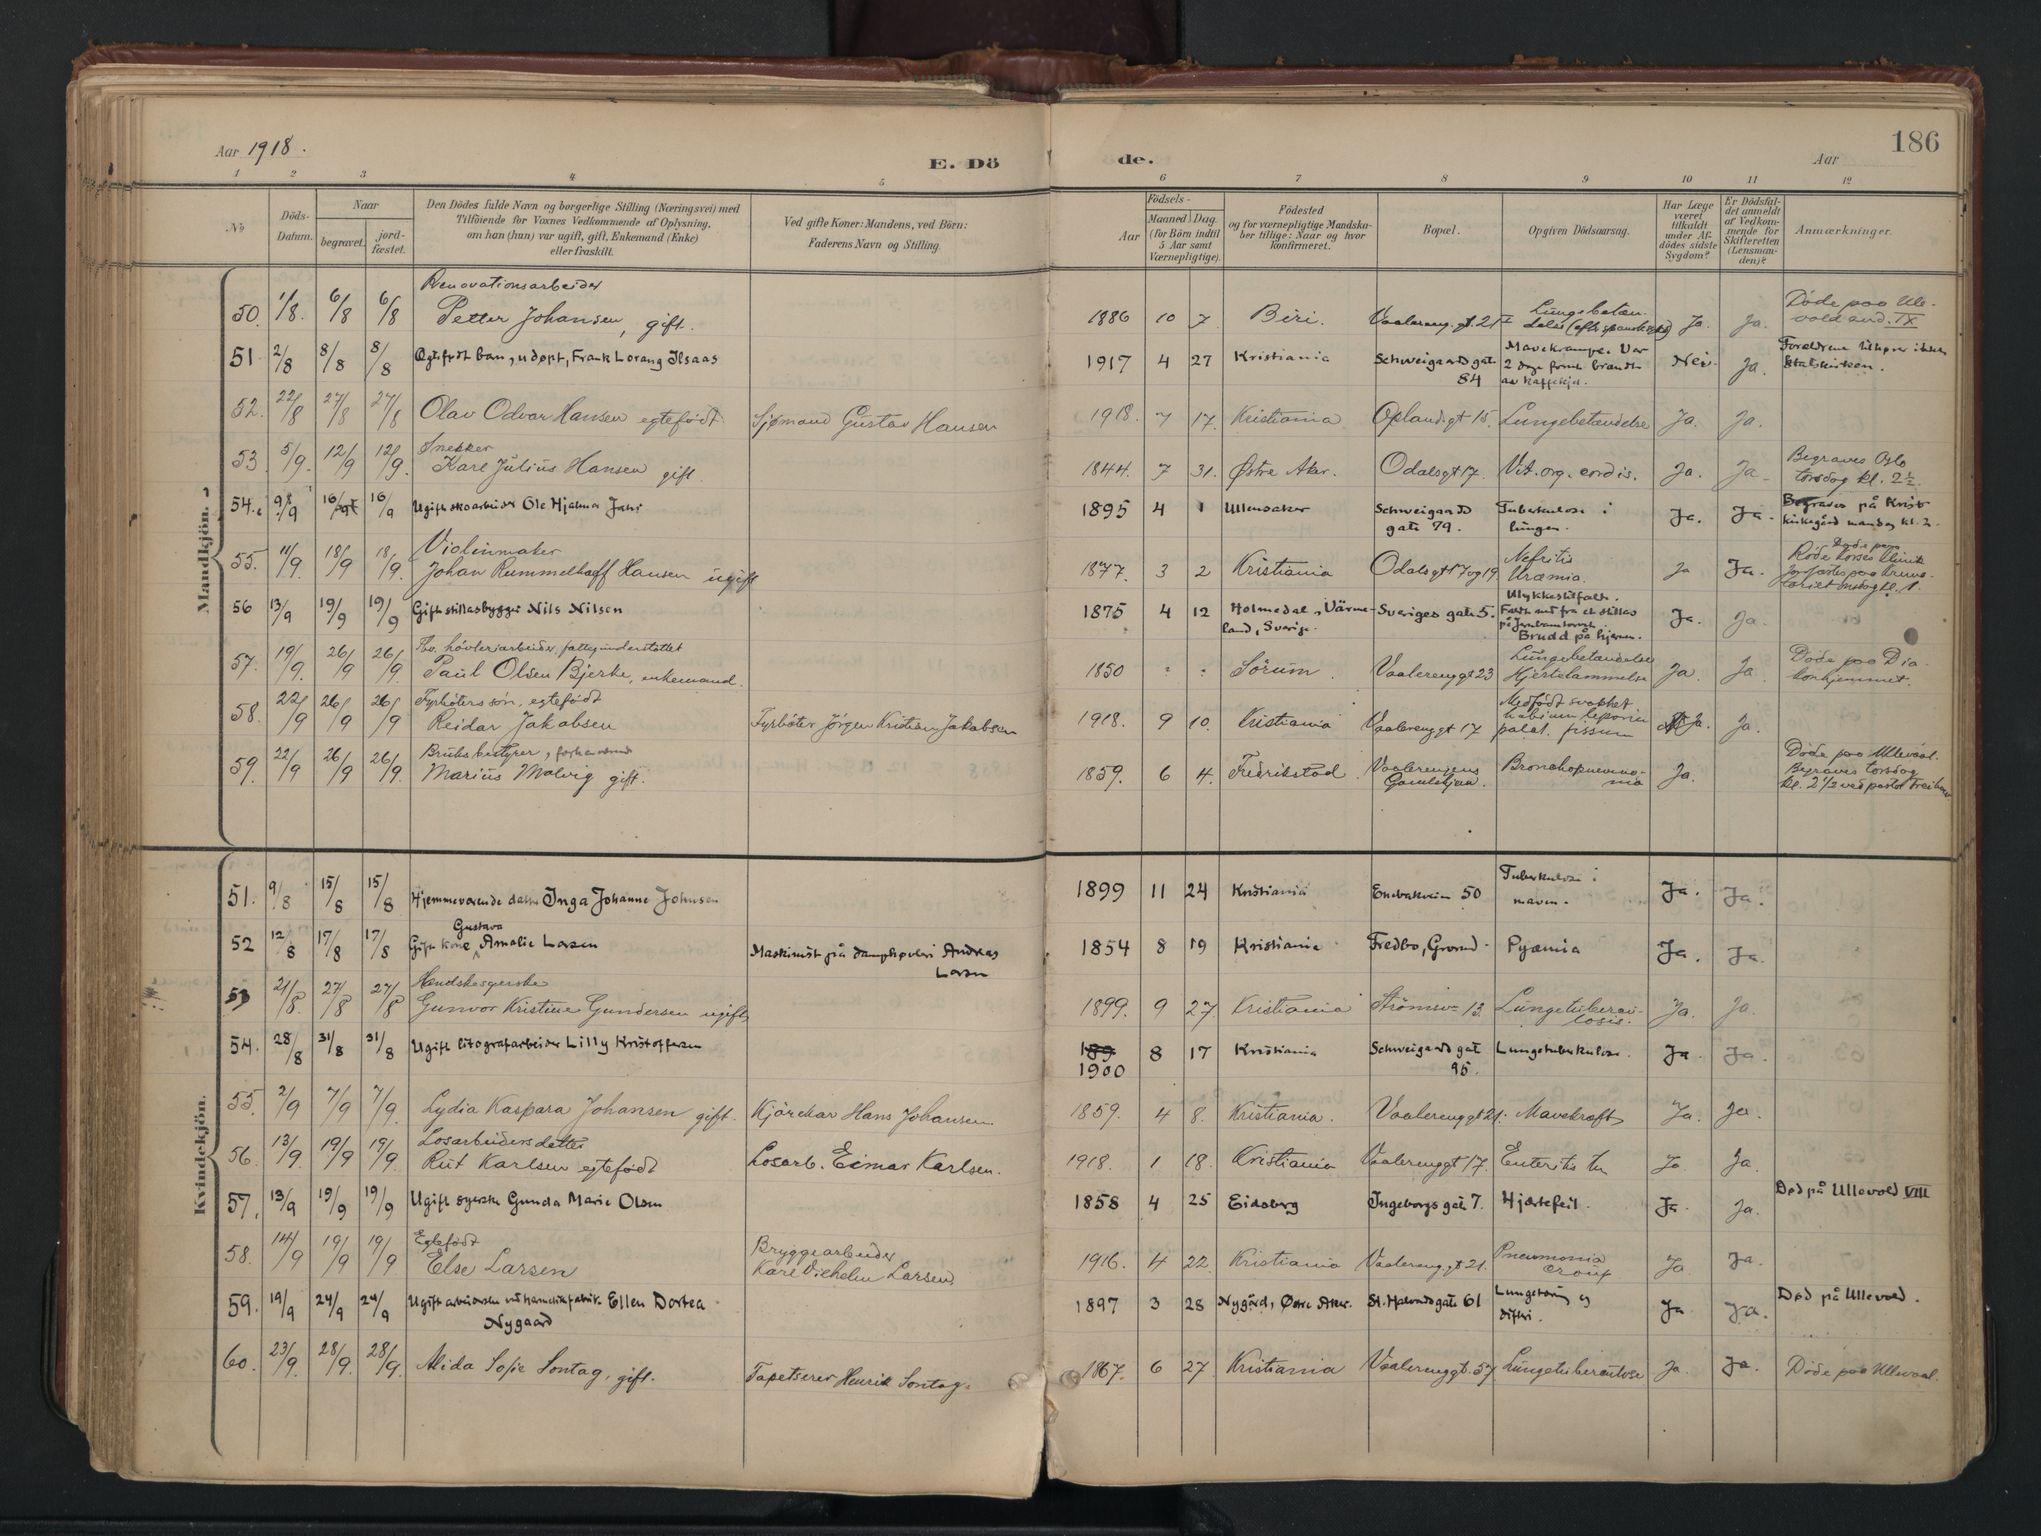 186
Aar 1918.
E. Dö de.
Aar
1 2 3 4 5 6 7 8 9 10 11 12
No
Döds-Datum.
Naar
begravet.
jord-fæstet.
Den Dödes fulde Navn og borgerlige Stilling (Næringsvei) med
Tilföiende for Voxnes Vedkommende af Oplysning,
om han (hun) var ugift, gift, Enkemand (Enke)
eller fraskilt.
Ved gifte Koner: Mandens, ved Börn:
Faderens Navn og Stilling.
Födsels-
Aar
Maaned
Dag.
(for Börn indtil
5 Aar samt
Værnepligtige).
Födested
og for værnepligtige Mandskaber tillige: Naar og hvor
konfirmeret.
Bopæl.
Opgiven Dödsaarsag.
Har Læge
været
tilkaldt
under Afdödes sidste
Sygdom?
Er Dödsfaldet anmeldt
af Vedkommende for
Skifteretten
(Lensmanden)?
Anmærkninger.
Mandkjön.
Renovationsarbeider
50. 1/8. 6/8 6/8 Petter Johansen, gift. 1886 10 7. Biri. Vaalereng. gt. 21 Lungebetændelse Ja. Ja. Døde paa Ullevold avd. IX
51 2/8 8/8 8/8 Egtefødt barn, udøpt, Frank Lorang Ilsaas 1917 4 27 Kristiania Schweigaards gate 84 Mavekrampe. Var 2 dage forut brændt av kaffekjel. Nei. Ja. Forældrene tilhører ikke statskirken.
52. 22/8 27/8 27/8 Olav Odvar Hansen egtefødt. Sjømand Gustav Hansen 1918. 7 17. Kristiania Oplandsgt 15. Lungebetændelse Ja. Ja.
Snekker
53 5/9. 12/9 12/9. Karl Julius Hansen gift. 1844. 7 31. Østre Aker. Odalsgt 7. Vit. org. cordis. Ja. Ja. Begraves Oslo torsdag kl. 2½.
54. 9/9 16/9 16/9 Ugift skoarbeider Ole Hjalmar Jahr 1895 4 1 Ullensaker Schweigaards gate 79. Tuberkulose i lungen. Ja. Ja. Begraves på Krist kirkegård mandag kl. 2.
Violinmaker
55. 11/9. 18/9 18/9. Johan Rummelhoff Hansen ugift 1877. 3 2 Kristiania Odalsgt 17 og 19. Nefritis Uræmia. Ja Ja. Døde paa Røde Korses Klinik
56 13/9 19/9 19/9 Gift stillasbygger Nils Nilsen 1875 4 12 Holmedal, Värmeland, Sverige. Sveriges gate 5. Ulykkestilfælde. Faldt ned fra et stillas Brudd på hjernen. Ja. Ja.
Fhv. høvleriarbeider, fattigunderstøttet
57. 19/9. 26/9 26/9. Paul Olsen Bjerke, enkemand. 1850 : : Sörum. Vaalerenggt 23 Lungebetændelse Hjertelammelse Ja. Ja Døde paa Diakonhjemmet.
Fyrböters sön, egtefødt
58. 22/9 26/9 26/9 Reidar Jakobsen Fyrböter Jörgen Kristian Jakobsen 1918. 9 10. Kristiania Vaalerenggt 17 Medfødt svakhet labium leporin palat. fissum Ja. Ja.
Bruksbestyrer, forhenværende
59. 22/9 26/9 26/9. Marius Malvig gift. 1859. 6 4. Fredrikstad Vaalerengens Gamlehjem. Bronchopneumonia Ja. Døde paa Ullevaal. Begraves torsdag kl. 2½ ved pastor
Kvindekjön.
51. 9/8 15/8 15/8 Hjemmeværende datter Inga Johanne Johnsen 1899 11 24 Kristiania Enebakveien 50 Tuberkulose i maven. Ja. Ja.
52 12/8 17/8 17/8 Gift kone Gustava Amalie Larsen Maskinist på damphøvleri Andreas Larsen 1854 8 19 Kristiania Fredbo, Grorud. Pyæmia Ja. Ja.
Handskesyerske
53 21/8. 27/8 27/8 Gunvor Kristine Gundersen ugift 1899. 9 27. Kristiania Strömsv. 13. Lungetuberculosis. Ja. Ja.
54. 28/8 31/8 31/8 Ugift litografarbeider Lilly Kristoffersen 1900 8 17 Kristiania Schweigaards gate 95. Lungetuberkulose. Ja. Ja.
55. 2/9 7/9 7/9. Lydia Kaspara Johansen gift. Kjörekar Hans Johansen. 1859. 4 8. Kristiania. Vaalerenggt 21. Mavekræft Ja. Ja.
Losarbeiders datter
56. 13/9. 19/9 19/9. Rut Karlsen egtefødt Losarb. Eimar Karlsen. 1918. 1 18. Kristiania Vaalerenggt 17. Enteritis Ja Ja.
57. 13/9 19/9 19/9 Ugift syerske Gunda Marie Olsen 1858 4 25 Eidsberg Ingeborgs gate 7. Hjertefeil. Ja. Ja. Død på Ullevold VIII
Egtefødt
58. 14/9 19/9 19/9 Else Larsen Bryggearbeider Karl Vilhelm Larsen. 1916. 4 22. Kristiania Vaalerenggt 21. Pneumonia croup Ja Ja.
59. 19/9 24/9 24/9 Ugift arbeiderske ved hermetikfabrik Ellen Dortea Nygaard 1897 3 28 Nygård, Østre Aker. St. Halvards gate 61 Lungetæring og difteri. Ja Ja. Død på Ullevold.
60. 23/9. 28/9. 28/9. Alida Sofie Sontag, gift. Tapetserer Henrik Sontag. 1867. 6 27. Kristiania Vaalerenggt. 57 Lungetuberculose Ja. Ja. Døde paa Ullevaal.